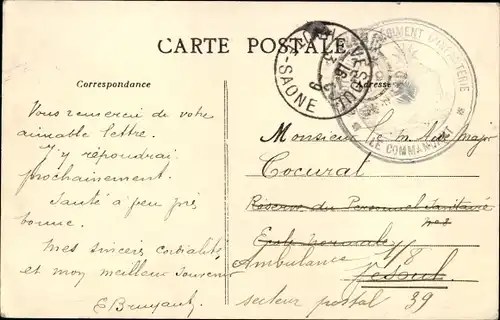 CARTE POSTALE
Correspondance
Adresse
VESOUL
-SAONE
REGIMENT D'INFANTERIE
LE COMMAN
Vous remercie de votre
aimable lettre.
J'y répondrai
prochainement.
Santé à peu près
bonne.
Mes sincères cordialités
et mon meilleur souvenir
E Bruyant
Monsieur le m. Aide major
Cocural
Reserve du Personnel Sanitaire
Ecole Normale
Ambulance 1/8
Vesoul
secteur postal 39